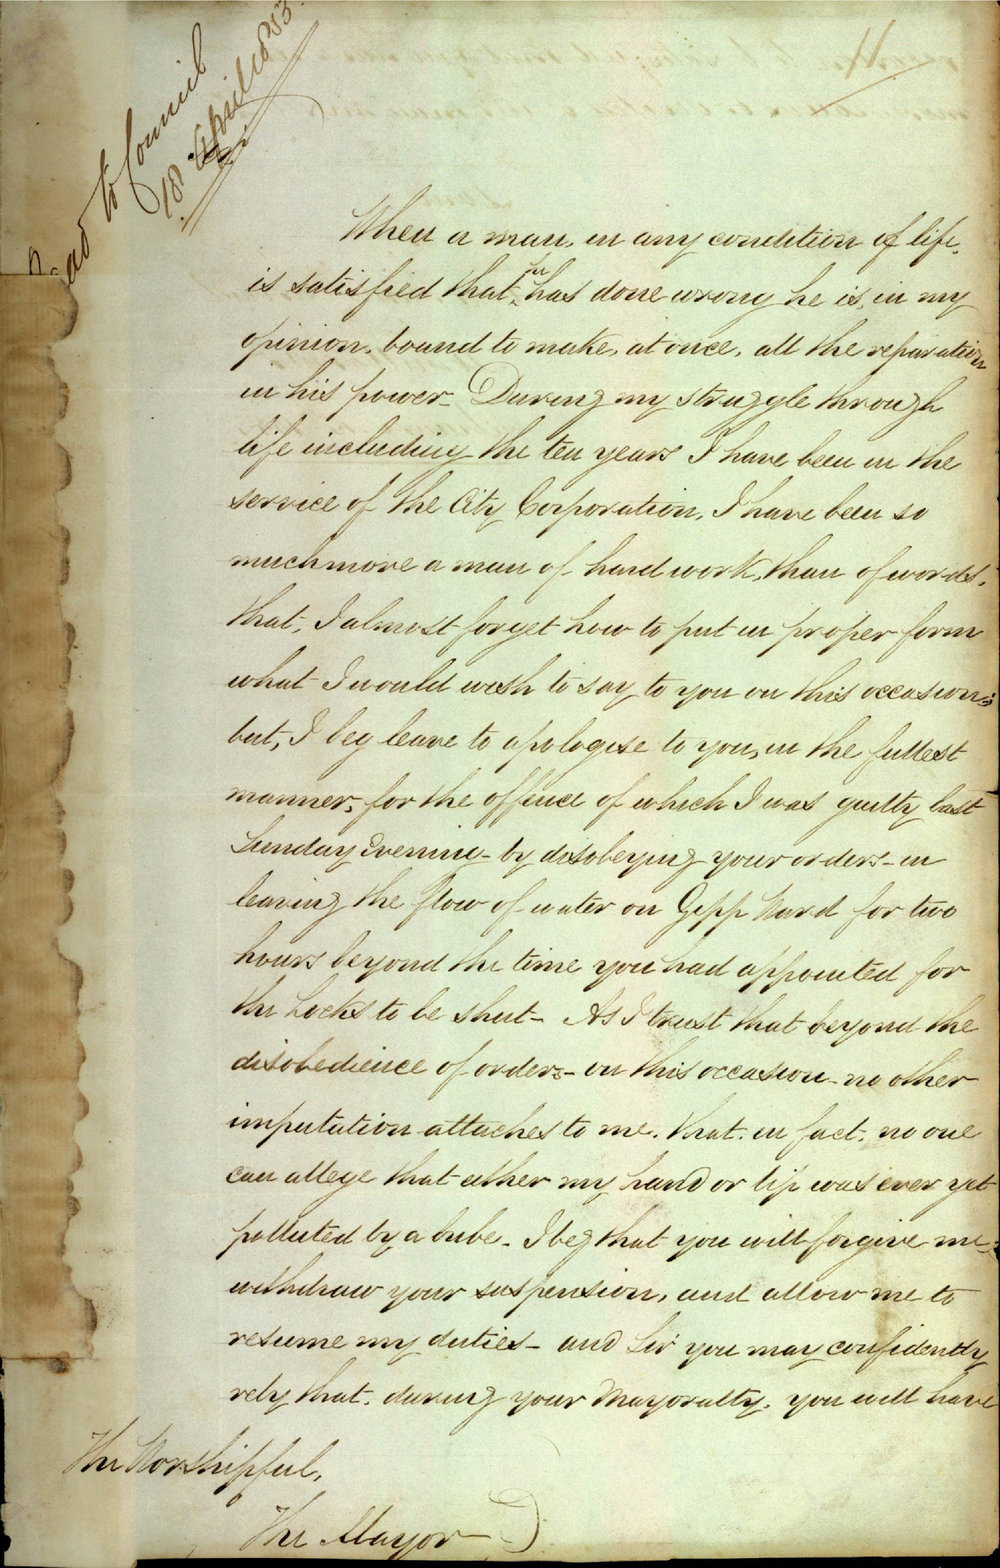 Read to Council
18 April 1853
When a man, in any condition of life,
is satisfied that he has done wrong he is, in my
opinion, bound to make, at once, all the reparation
in his power_ During my struggle through
life including the ten years I have been in the
service of the City Corporation, I have been so
much more a man of hard work, than of words,
that, I almost forget how to put in proper form
what I would wish to say to you on this occasion;
but, I beg leave to apologise to you, in the fullest
manner, for the offence of which I was guilty last
Sunday Evening- by disobeying your orders- in
leaving the flow of water on Gipp Ward for two
hours beyond the time you had appointed for
the Locks to be shut- As I trust that beyond the
disobedience of orders- on this occasion- no other
imputation attaches to me. that. in fact. no one
can allege that either my hand or lip was ever yet
polluted by a bribe- I beg that you will forgive me-
withdraw your suspension, and allow me to
resume my duties- and Sir you may confidently
rely that. during your Mayoralty. you will have
The Worshipful,
The Mayor